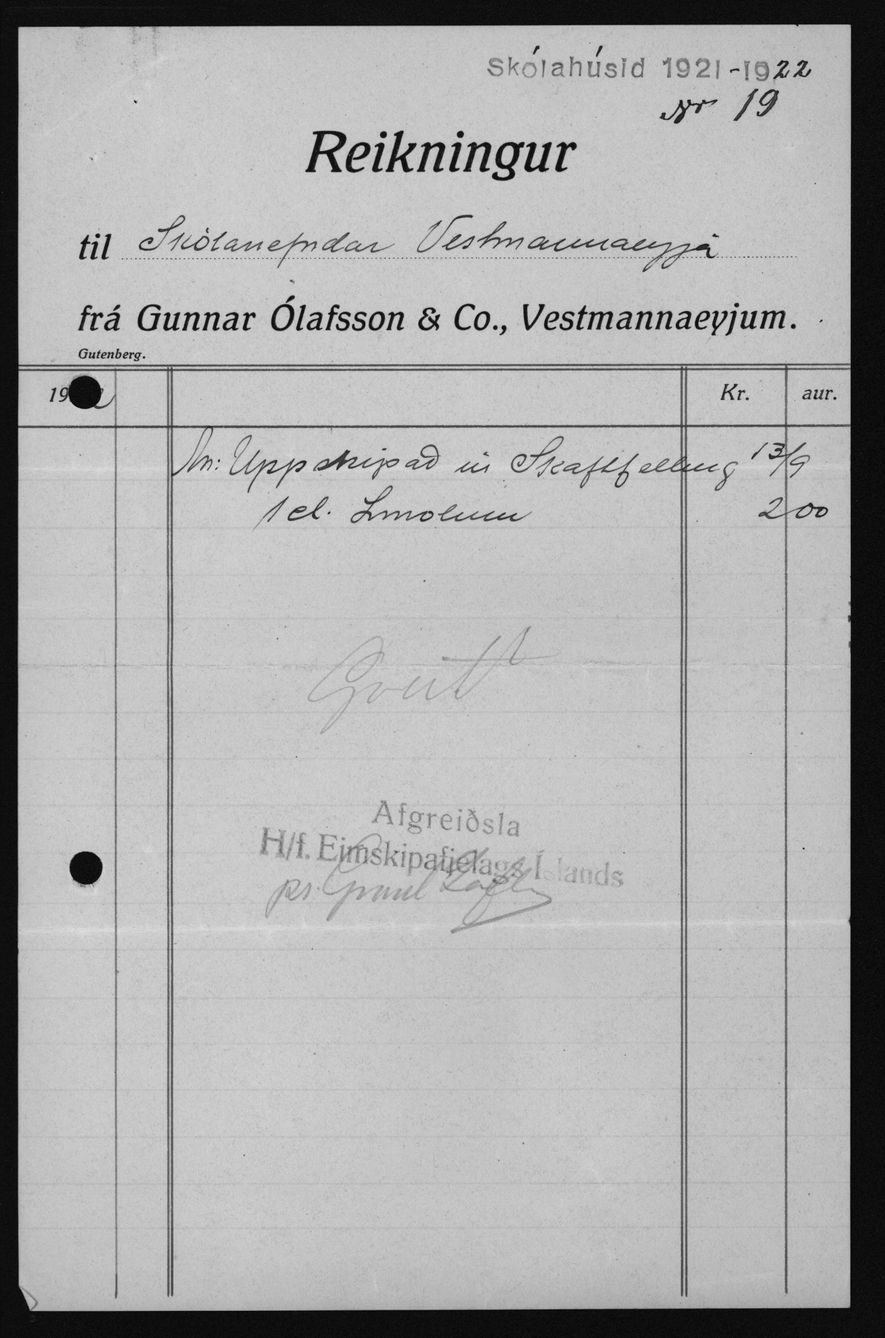 Skólahúsid 1921-1922
Nr 19
Reikningur
til Skólanefndar Vestmannaeyja
frá Gunnar Ólafsson & Co., Vestmannaeyjum.
Gutenberg.
19 Kr. aur.
Uppskipað úr Skaftfelling 13/9
1 cl. 2 00
Kvitt
Afgreiðsla
H/f. Eimskipafjelags Íslands
pr.